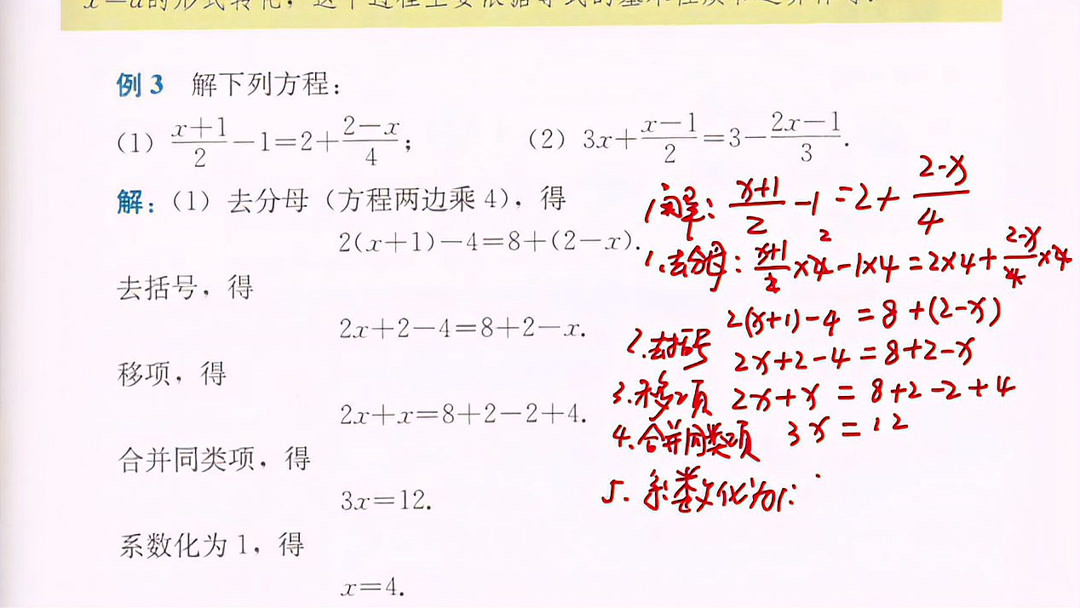 x=a的形式转化，这个过程主要依据等式的基本性质和运算律等.
例3 解下列方程：
(1) \frac{x+1}{2}-1=2+\frac{2-x}{4}； (2) 3x+\frac{x-1}{2}=3-\frac{2x-1}{3}.
解：(1) 去分母（方程两边乘4），得
2(x+1)-4=8+(2-x).
去括号，得
2x+2-4=8+2-x.
移项，得
2x+x=8+2-2+4.
合并同类项，得
3x=12.
系数化为1，得
x=4.
解：\frac{x+1}{2}-1=2+\frac{2-x}{4}
1.去分母：\frac{x+1}{2}×4-1×4=2×4+\frac{2-x}{4}×4
2
2(x+1)-4=8+(2-x)
2.去括号 2x+2-4=8+2-x
3.移项 2x+x=8+2-2+4
4.合并同类项 3x=12
5.系数化为1：